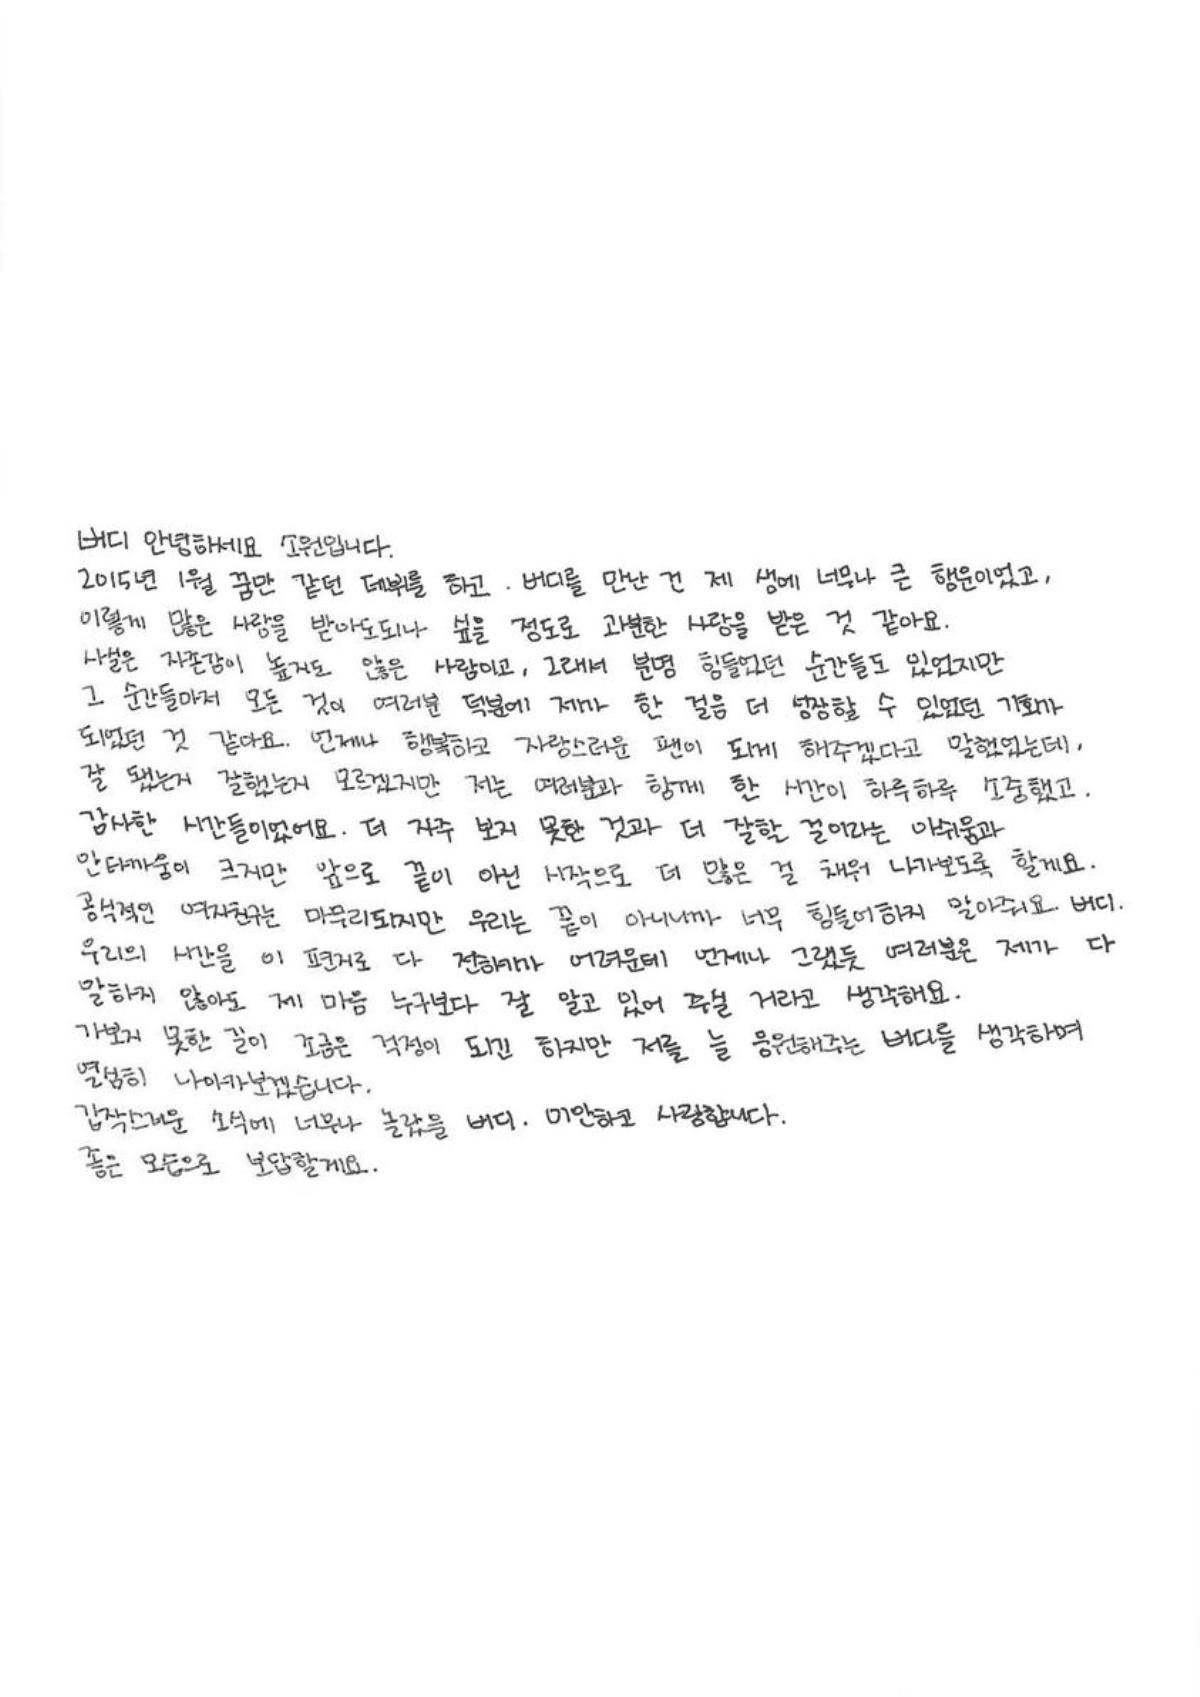 버디 안녕하세요 소원입니다.
2015년 1월 꿈만 같던 데뷔를 하고. 버디를 만난 건 제 생에 너무나 큰 행운이었고,
이렇게 많은 사랑을 받아도되나 싶을 정도로 과분한 사랑을 받은 것 같아요.
사실은 자존감이 높지도 않은 사람이고, 그래서 분명 힘들었던 순간들도 있었지만
그 순간들마저 모든 것이 여러분 덕분에 제가 한 걸음 더 성장할 수 있었던 기회가
되었던 것 같아요. 언제나 행복하고 자랑스러운 팬이 되게 해주겠다고 말했었는데,
잘 됐는지 잘했는지 모르겠지만 저는 여러분과 함께 한 시간이 하루하루 소중했고.
감사한 시간들이었어요. 더 자주 보지 못한 것과 더 잘할 걸이라는 아쉬움과
안타까움이 크지만 앞으로 끝이 아닌 시작으로 더 많은 걸 채워 나가보도록 할게요.
공식적인 여자친구는 마무리되지만 우리는 끝이 아니니까 너무 힘들어하지 말아줘요. 버디.
우리의 시간을 이 편지로 다 전하기가 어려운데 언제나 그랬듯 여러분은 제가 다
말하지 않아도 제 마음 누구보다 잘 알고 있어 주실 거라고 생각해요.
가보지 못한 길이 조금은 걱정이 되긴 하지만 저를 늘 응원해주는 버디를 생각하며
열심히 나아가보겠습니다.
갑작스러운 소식에 너무나 놀랐을 버디. 미안하고 사랑합니다.
좋은 모습으로 보답할게요.